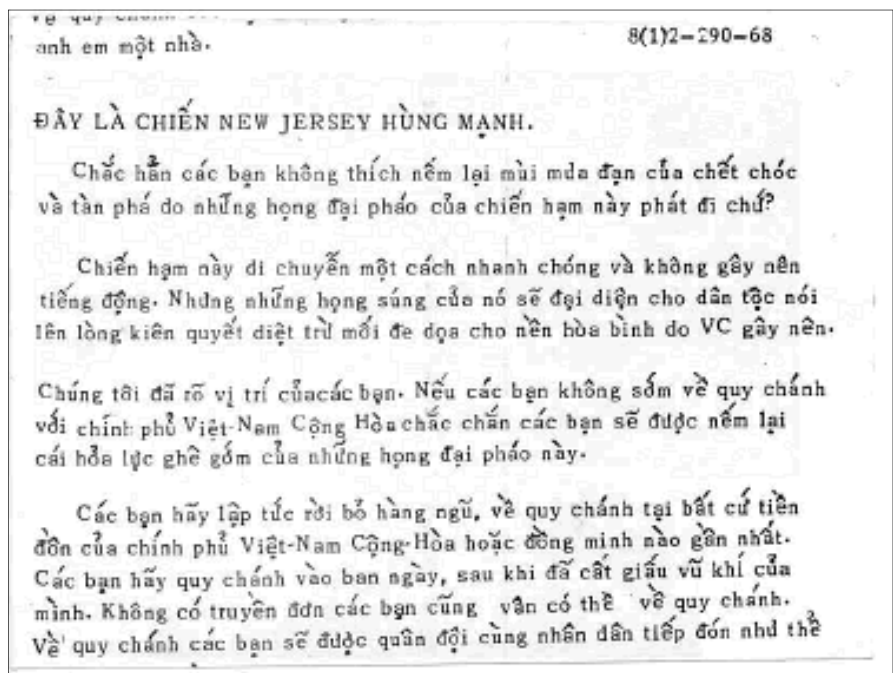 Về quy chánh
anh em một nhà.
8(1)2-290-68
ĐÂY LÀ CHIẾN NEW JERSEY HÙNG MẠNH.
Chắc hẳn các bạn không thích nếm lại mùi mưa đạn của chết chóc
và tàn phá do những họng đại pháo của chiến hạm này phát đi chứ?
Chiến hạm này di chuyển một cách nhanh chóng và không gây nên
tiếng động. Nhưng những họng súng của nó sẽ đại diện cho dân tộc nói
lên lòng kiên quyết diệt trừ mối đe dọa cho nền hòa bình do VC gây nên.
Chúng tôi đã rõ vị trí củacác bạn. Nếu các bạn không sớm về quy chánh
với chính phủ Việt-Nam Cộng Hòa chắc chắn các bạn sẽ được nếm lại
cái hỏa lực ghê gớm của những họng đại pháo này.
Các bạn hãy lập tức rời bỏ hàng ngũ, về quy chánh tại bất cứ tiền
đồn của chính phủ Việt-Nam Cộng-Hòa hoặc đồng minh nào gần nhất.
Các bạn hãy quy chánh vào ban ngày, sau khi đã cất giấu vũ khí của
mình. Không có truyền đơn các bạn cũng vẫn có thể về quy chánh.
Về quy chánh các bạn sẽ được quân đội cùng nhân dân tiếp đón như thể